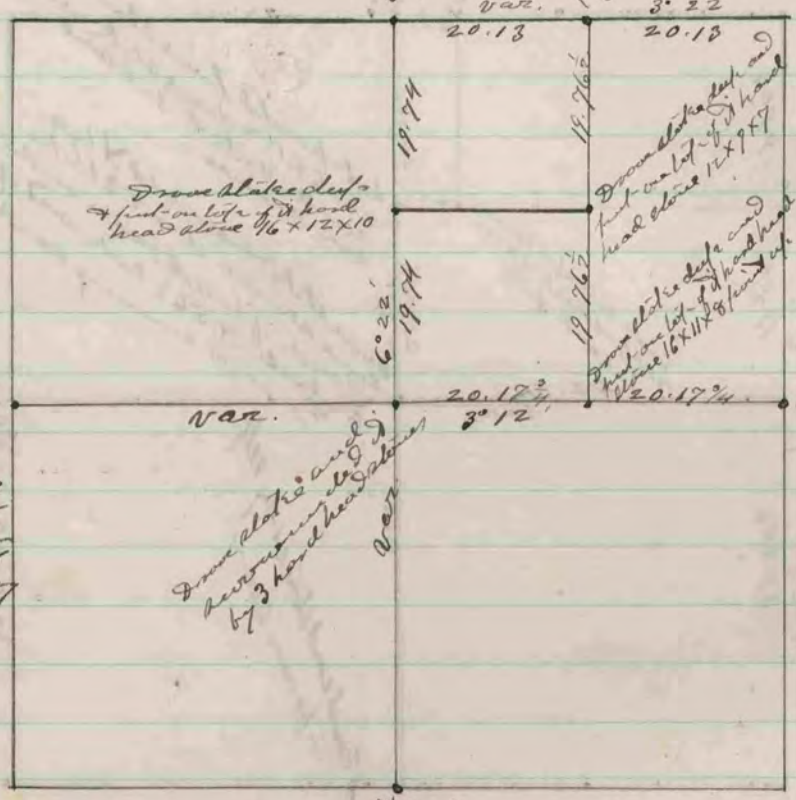 var. 3° 22
20.13 20.13
19.74
19.76½
Drove stake deep and
put on top of it hard
head stone 12 x 9 x 7
Drove stake deep
& put on top of it hard
head stone 16 x 12 x 10
6° 22'
19.74
19.76½
Drove stake deep and
put on top of it hard head
stone 16 x 11 x 8 point up.
20.17¾ 20.17¾
var. 3° 12'
Drove stake and
surrounded it
by 3 hard head stones
var